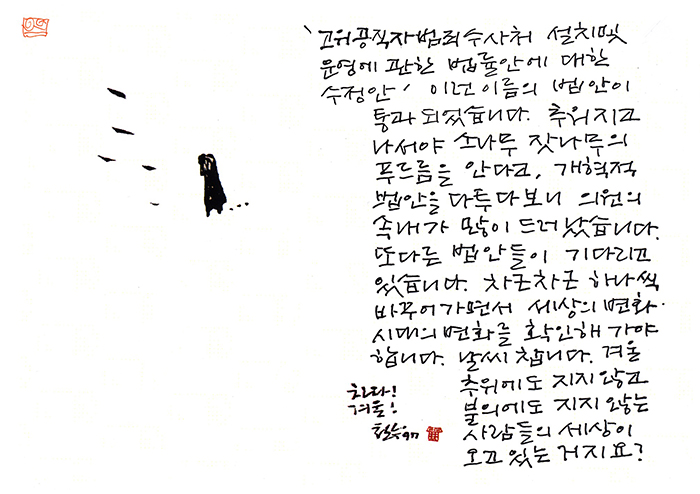 ‘고위공직자범죄수사처 설치및
운영에 관한 법률안에 대한
수정안’ 이런 이름의 법안이
통과 되었습니다. 추워지고
나서야 소나무 잣나무의
푸르름을 안다고, 개혁적
법안을 다투다보니 의원의
속내가 많이 드러났습니다.
또다른 법안들이 기다리고
있습니다. 차근차근 하나씩
바꾸어가면서 세상의 변화·
시대의 변화를 확인해 가야
합니다. 날씨 찹니다. 겨울
추위에도 지지 않고
불의에도 지지 않는
사람들의 세상이
오고 있는 거지요?
찬라!
겨울!
철수